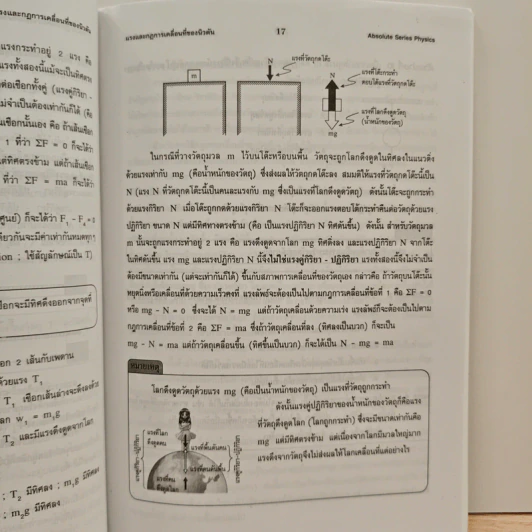 รงและกฎการเคลื่อนที่ของนิวตัน
แรงกระทำอยู่ 2 แรง คือ
แรงทั้งสองนี้แม้จะเป็นทิศตรง
ต่อเชือกทั้งคู่ (แรงคู่กิริยา -
ม่จำเป็นต้องเท่ากันก็ได้ (คือ
1 ที่ว่า ΣF = 0 ก็จะได้ว่า
ที่ว่า ΣF = ma ก็จะได้ว่า
ศูนย์) ก็จะได้ว่า F₁ - F₂ = 0
ดียวกันจะมีค่าเท่ากันหมดทุกๆ
ion ; ใช้สัญลักษณ์เป็น T)
ชือกจะมีทิศดึงออกจากจุดที่
อก 2 เส้นกับเพดาน
ด้วยแรง T₁
T₁ เชือกเส้นล่างจะดึงลงด้วย
ลก w₁ = m₁g
T₂ และมีแรงดึงดูดจากโลก
; T₂ มีทิศลง ; m₁g มีทิศลง
; m₂g มีทิศลง
แรงและกฎการเคลื่อนที่ของนิวตัน 17 Absolute Series Physics
m
N
แรงที่วัตถุกดโต๊ะ
N
แรงที่โต๊ะกระทำ
ตอบโต้แรงที่วัตถุกดโต๊ะ
แรงที่โลกดึงดูดวัตถุ
(น้ำหนักของวัตถุ)
mg
ในกรณีที่วางวัตถุมวล m ไว้บนโต๊ะหรือบนพื้น วัตถุจะถูกโลกดึงดูดในทิศลงในแนวดิ่ง
ด้วยแรงเท่ากับ mg (คือน้ำหนักของวัตถุ) ซึ่งส่งผลให้วัตถุกดโต๊ะลง สมมติให้แรงที่วัตถุกดโต๊ะนี้เป็น
N (แรง N ที่วัตถุกดโต๊ะนี้เป็นคนละแรงกับ mg ซึ่งเป็นแรงที่โลกดึงดูดวัตถุ) ดังนั้นโต๊ะจะถูกกระทำ
ด้วยแรงกิริยา N เมื่อโต๊ะถูกกดด้วยกิริยา N โต๊ะก็จะออกแรงตอบโต้กระทำคืนต่อวัตถุด้วยแรง
ปฏิกิริยา ขนาด N แต่มีทิศทางตรงข้าม (คือ เป็นแรงปฏิกิริยา N ทิศดันขึ้น) ดังนั้น สำหรับวัตถุมวล
m นั้นจะถูกแรงกระทำอยู่ 2 แรง คือ แรงดึงดูดจากโลก mg ทิศดิ่งลง และแรงปฏิกิริยา N จากโต๊ะ
ในทิศดันขึ้น แรง mg และแรงปฏิกิริยา N นี้จึงไม่ใช่แรงคู่กิริยา - ปฏิกิริยา แรงทั้งสองนี้จึงไม่จำเป็น
ต้องมีขนาดเท่ากัน (แต่จะเท่ากันก็ได้) ขึ้นกับสภาพการเคลื่อนที่ของวัตถุเอง กล่าวคือ ถ้าวัตถุบนโต๊ะนั้น
หยุดนิ่งหรือเคลื่อนที่ด้วยความเร็วคงที่ แรงลัพธ์จะต้องเป็นไปตามกฎการเคลื่อนที่ข้อที่ 1 คือ ΣF = 0
หรือ mg - N = 0 ซึ่งจะได้ N = mg แต่ถ้าวัตถุเคลื่อนด้วยความเร่ง แรงลัพธ์ก็จะต้องเป็นไปตาม
กฎการเคลื่อนที่ข้อที่ 2 คือ ΣF = ma ซึ่งถ้าวัตถุเคลื่อนที่ลง (ทิศลงเป็นบวก) ก็จะเป็น
mg - N = ma แต่ถ้าวัตถุเคลื่อนขึ้น (ทิศขึ้นเป็นบวก) ก็จะได้เป็น N - mg = ma
หมายเหตุ
โลกดึงดูดวัตถุด้วยแรง mg (คือเป็นน้ำหนักของวัตถุ) เป็นแรงที่วัตถุถูกกระทำ
ดังนั้นแรงคู่ปฏิกิริยาของน้ำหนักของวัตถุก็คือแรง
ที่วัตถุดึงดูดโลก (โลกถูกกระทำ) ซึ่งจะมีขนาดเท่ากันคือ
mg แต่มีทิศตรงข้าม แต่เนื่องจากโลกมีมวลใหญ่มาก
แรงดึงจากวัตถุจึงไม่ส่งผลให้โลกเคลื่อนที่แต่อย่างไร
แรงที่โลก
ดึงดูดคน
แรงที่พื้นดันคน
แรงที่คนดันพื้น
แรงที่คน
ดึงดูดโลก